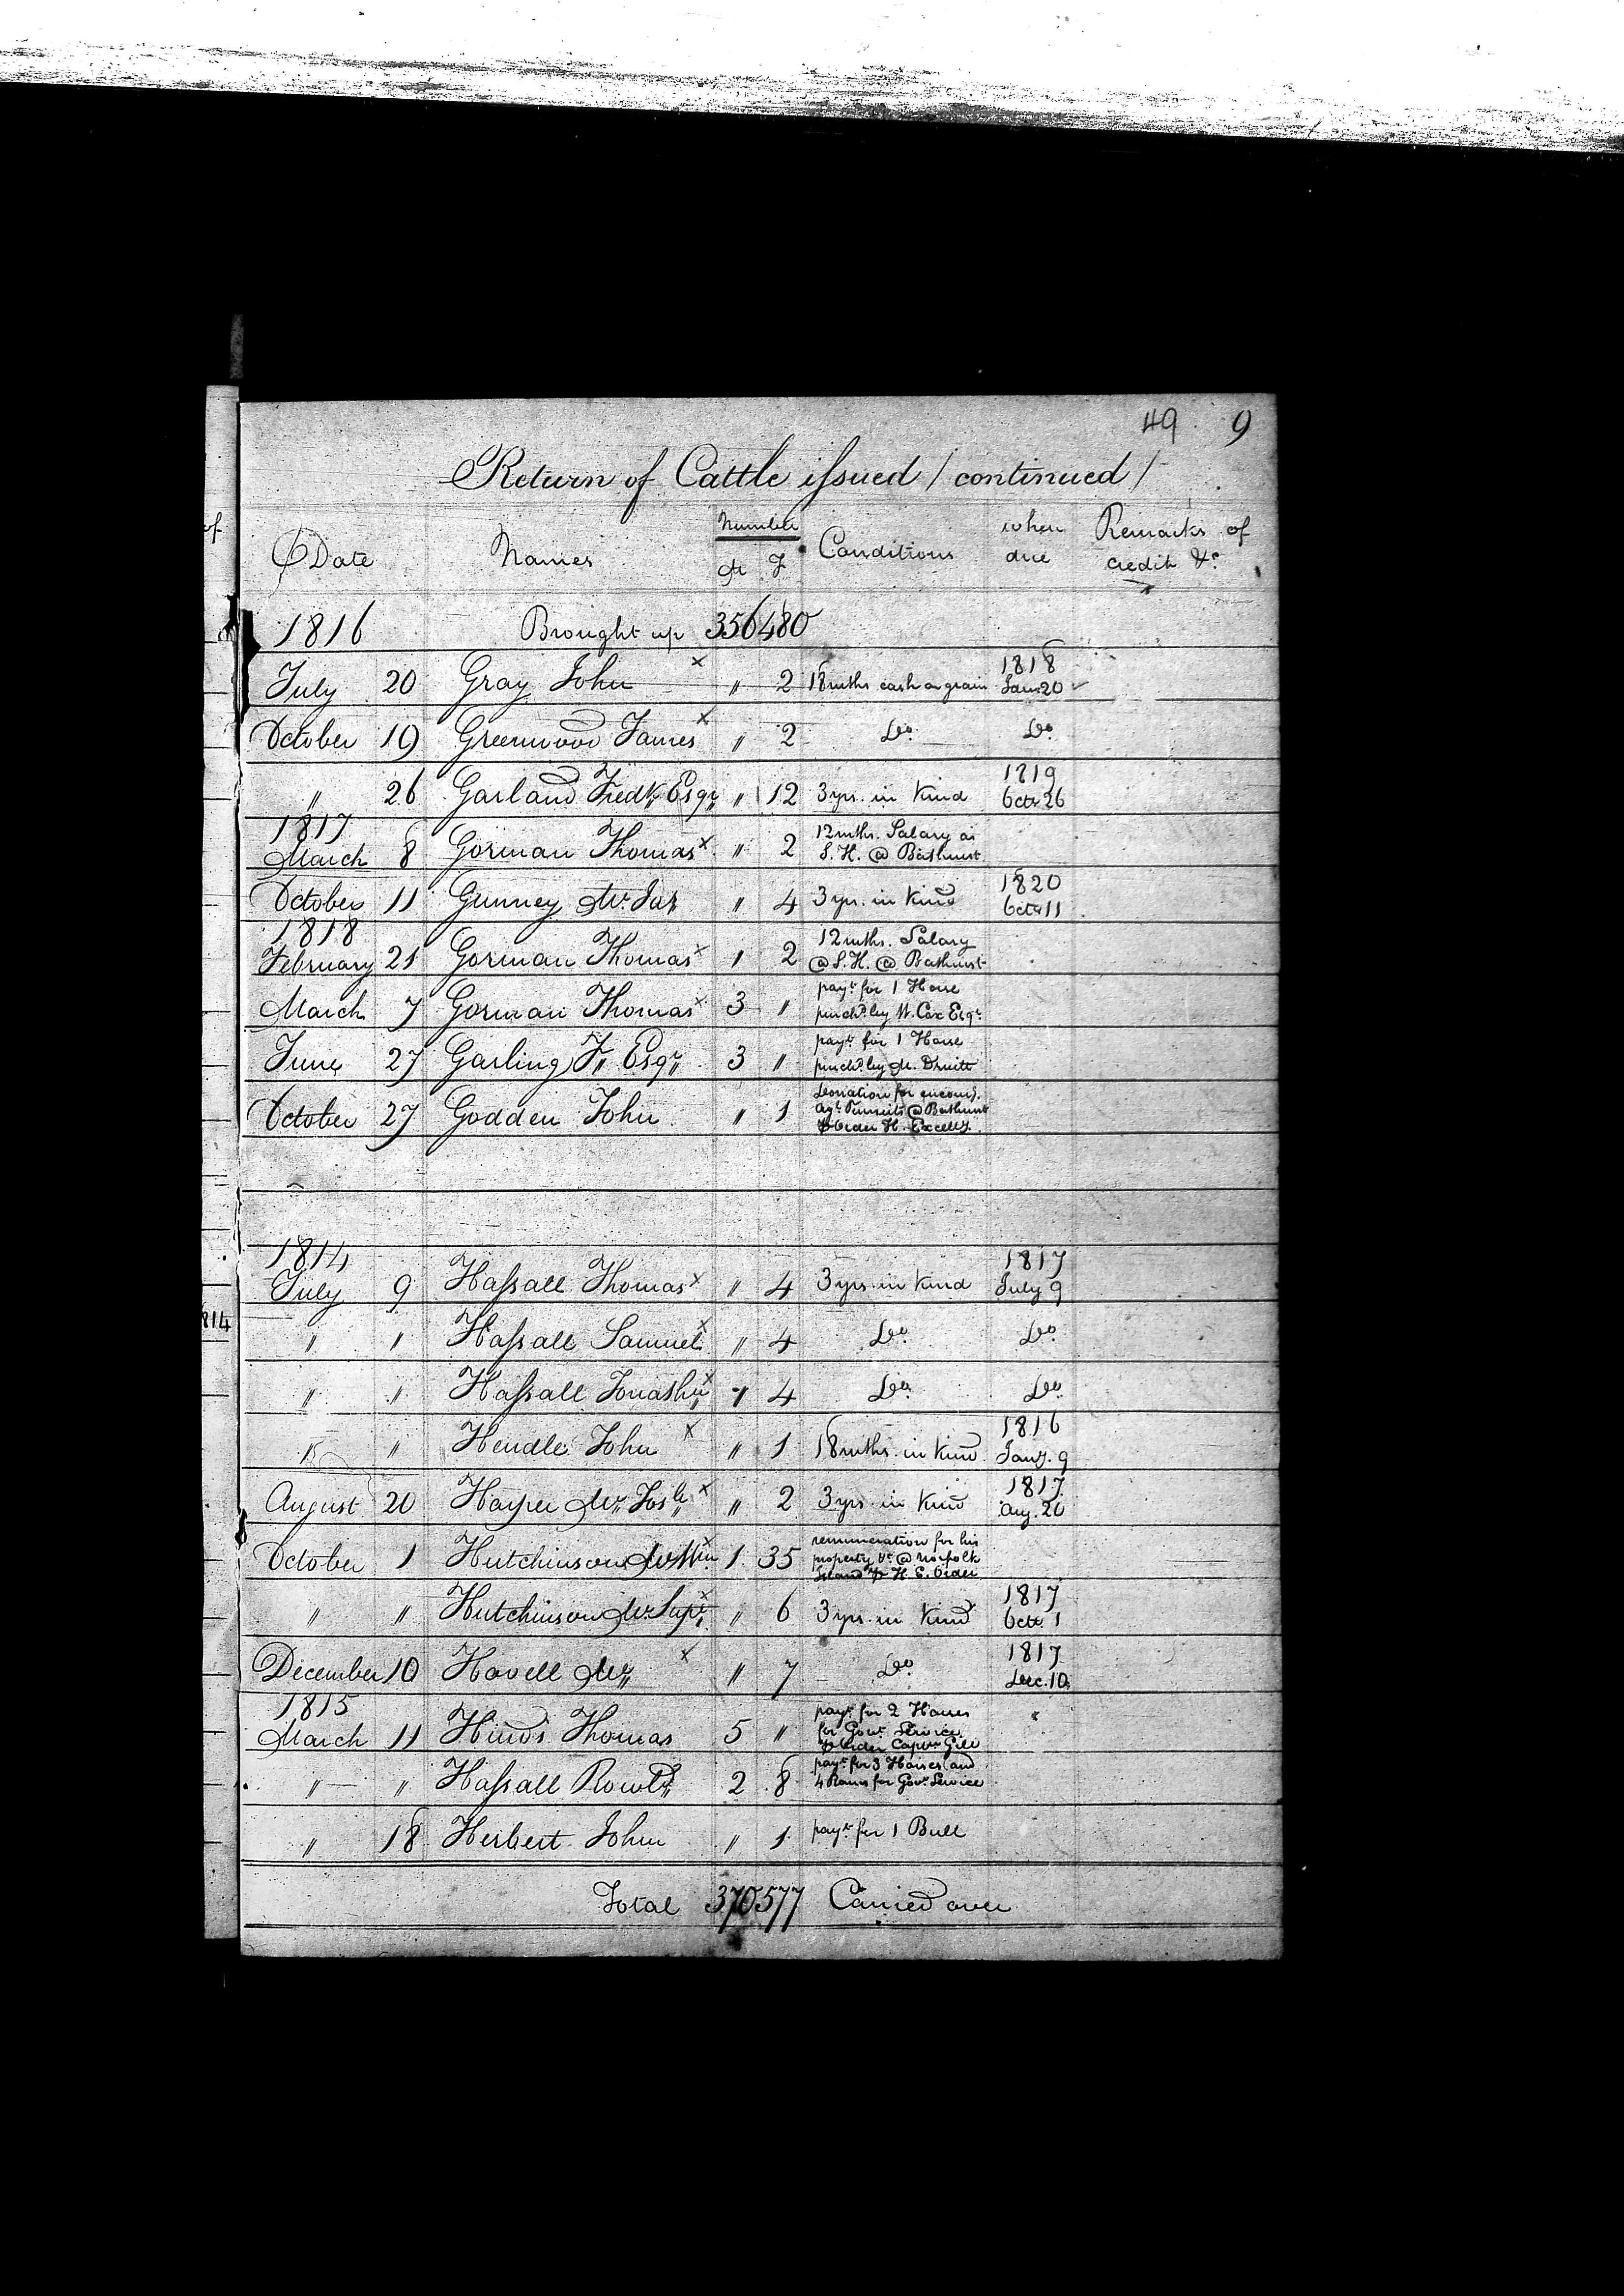 49. 9
Return of Cattle issued / continued /
Date Names Number M F Conditions when due Remarks of credit &c.
1816 Brought up 356 480
July 20 Gray John x " 2 18 mths cash or grain 1818 Jan. 20
October 19 Greenwood James x " 2 Do. Do.
" 26 Garland Fredk. Esqr. " 12 3 yrs. in Kind 1819 Octr 26
1817
March 8 Gorman Thomas x " 2 12 mths. Salary as S. H. @ Bathurst
October 11 Gunney Mr. Jas " 4 3 yrs. in Kind 1820 Octr 11
1818
February 21 Gorman Thomas x " 2 12 mths. Salary @ S. H. @ Bathurst
March 7 Gorman Thomas x 3 " payt. for 1 Horse purchd. by W. Cox Esqr.
June 27 Garling F. Esqr. 3 " payt. for 1 Horse purchd. by M. Druitt
October 27 Godden John " 1 Donation for encourt. Agl. Pursuits @ Bathurst p Order H. Excelly.
1814
July 9 Hassall Thomas x " 4 3 yrs. in Kind 1817 July 9
" " Hassall Samuel x " 4 Do. Do.
" " Hassall Jonathn x " 4 Do. Do.
" " Hendle John x " 1 18 mths. in Kind 1816 Jany. 9
August 20 Harper Mr. Josh x " 2 3 yrs. in Kind 1817 Aug. 20
October 1 Hutchinson Mr Wm 1 35 remuneration for his property &c. @ Norfolk Island p H. E. Order
" " Hutchinson Mr. Supt. x " 6 3 yrs. in Kind 1817 Octr. 1
December 10 Hovell Mr. x " 7 Do. 1817 Dec. 10
1815
March 11 Hinds Thomas 5 " payt. for 2 Horses for Govt. Service p Order Captn Gill
" " Hassall Rowld. 2 8 payt. for 3 Horses and 4 Rams for Govt. Service
" 18 Herbert John " 1 payt. for 1 Bull
Total 370 577 Carried over
of
814